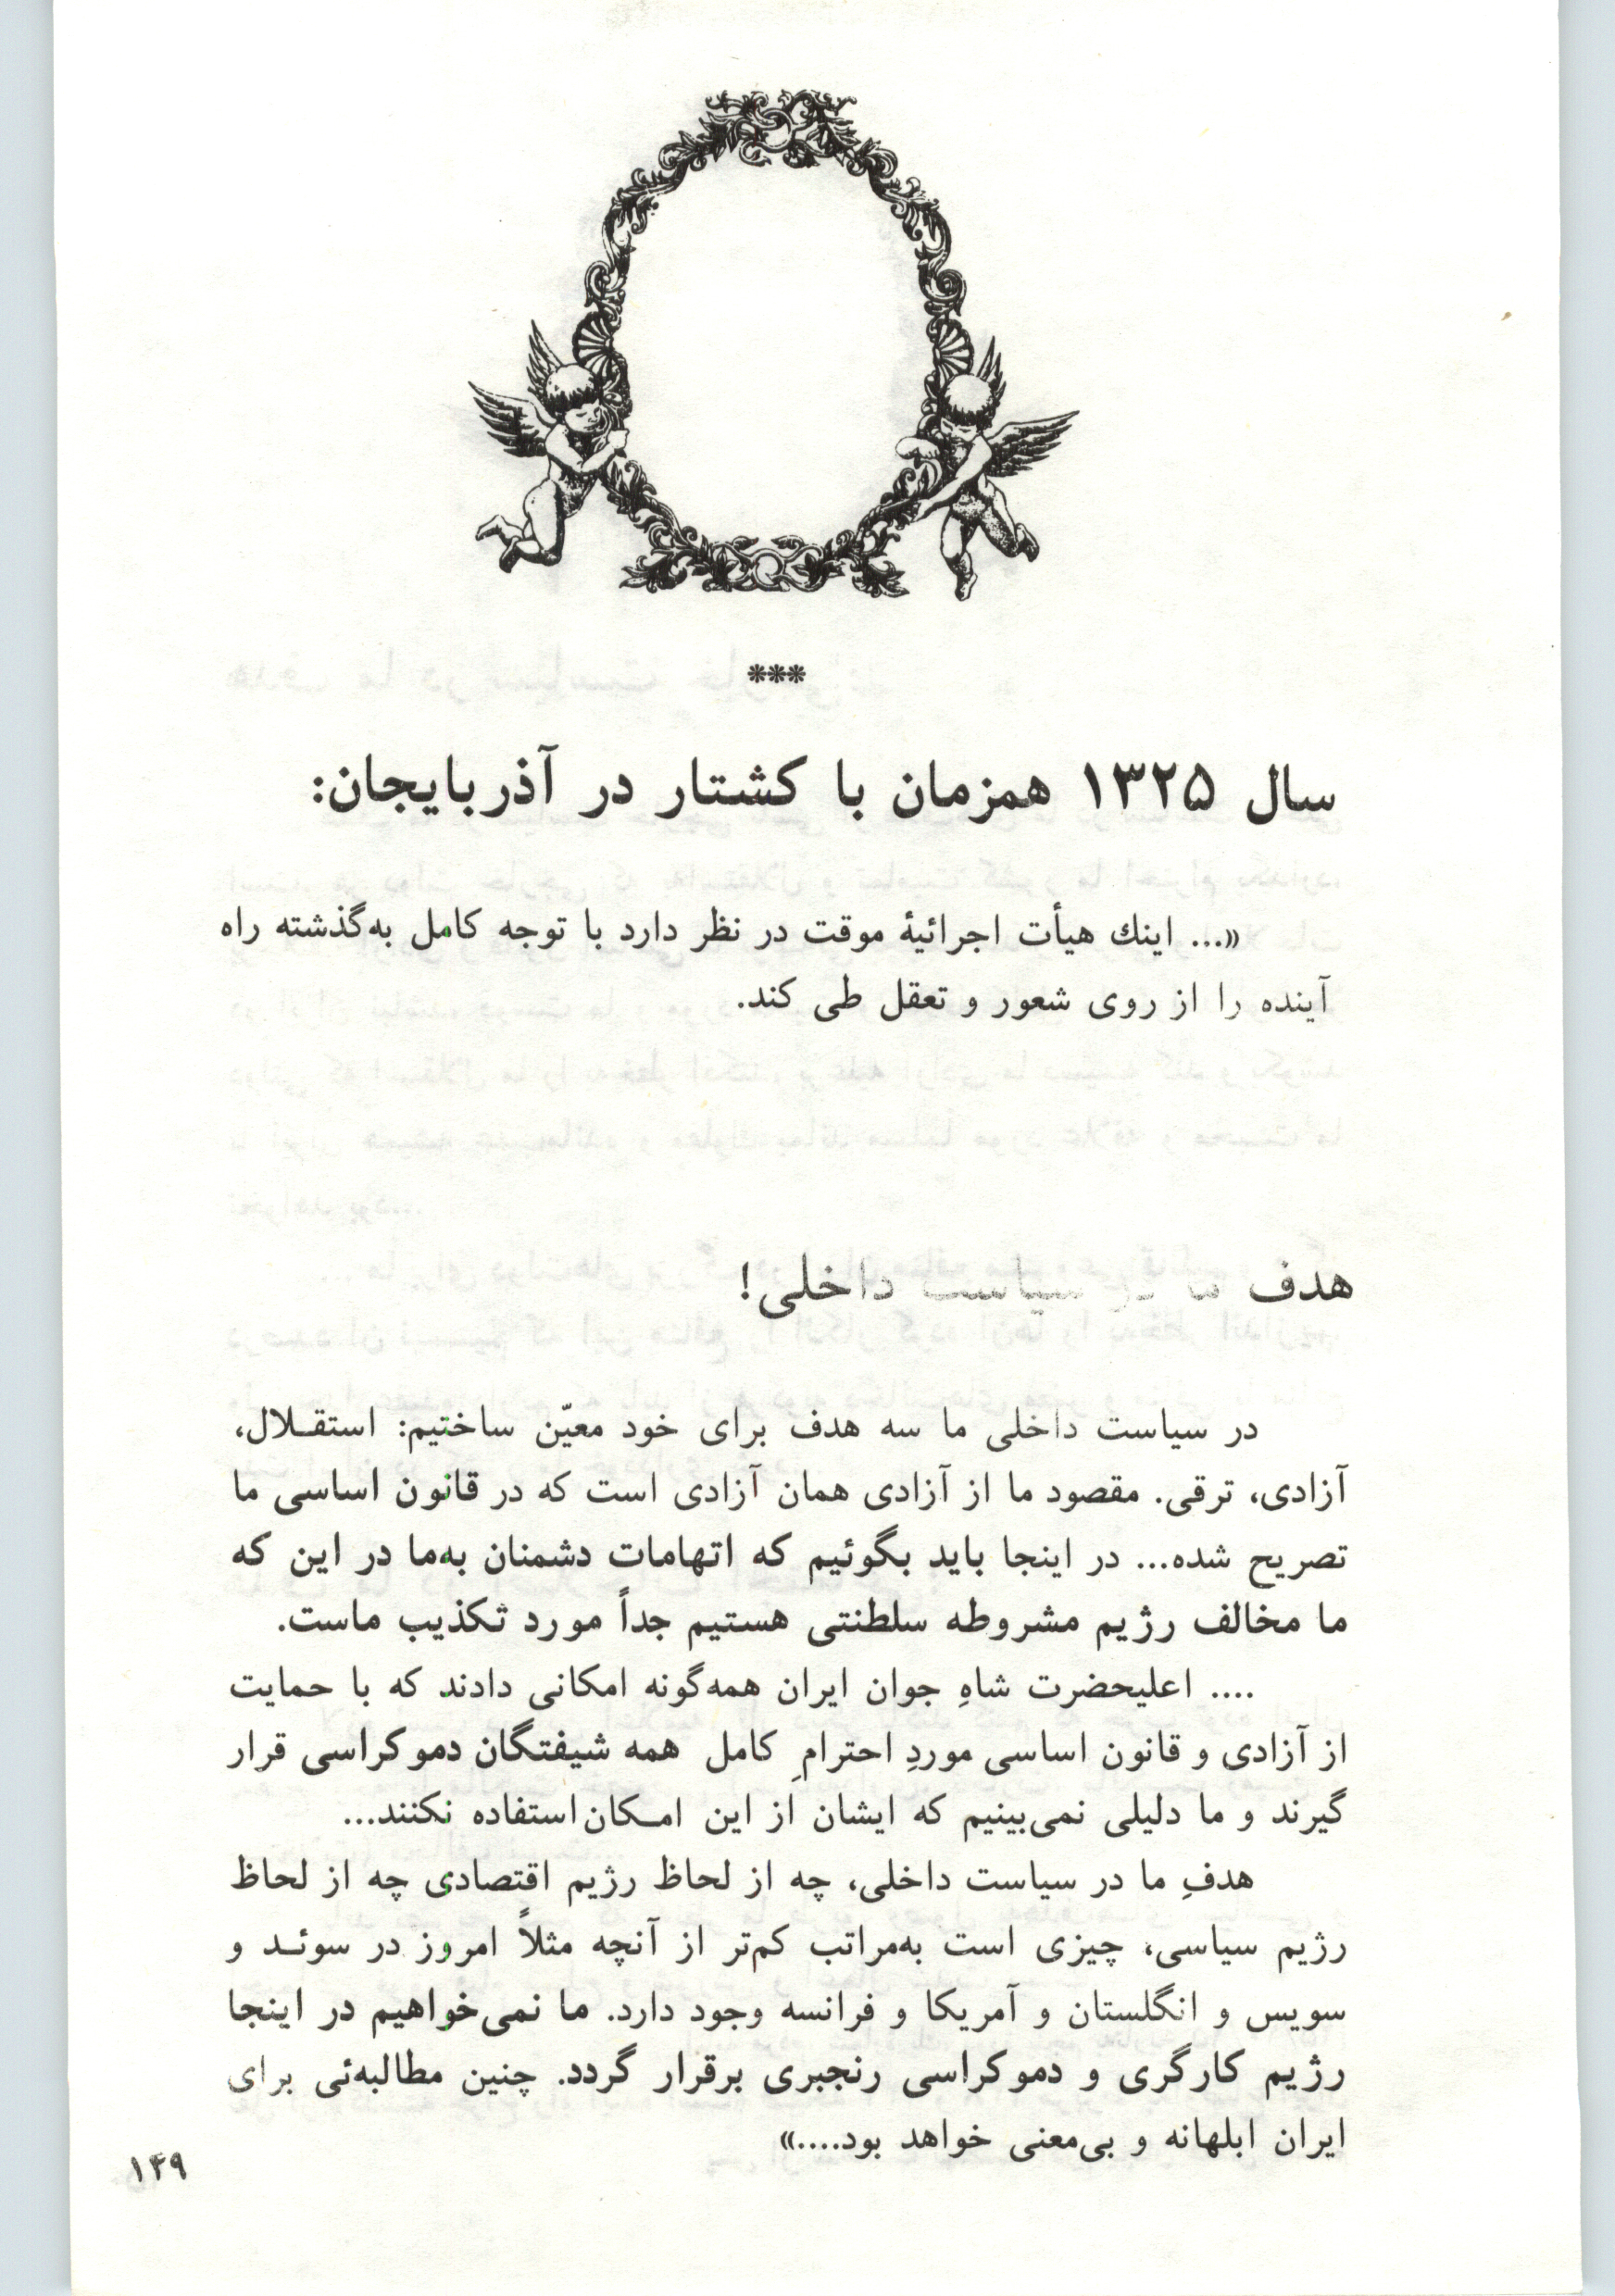 ***
سال ۱۳۲۵ همزمان با کشتار در آذربایجان:
«... اینك هیأت اجرائیهٔ موقت در نظر دارد با توجه کامل به‌گذشته راه
آینده را از روی شعور و تعقل طی کند.
هدف سیاست داخلی!
در سیاست داخلی ما سه هدف برای خود معیّن ساختیم: استقـلال،
آزادی، ترقی. مقصود ما از آزادی همان آزادی است که در قانون اساسی ما
تصریح شده... در اینجا باید بگوئیم که اتهامات دشمنان به‌ما در این که
ما مخالف رژیم مشروطه سلطنتی هستیم جداً مورد تکذیب ماست.
.... اعلیحضرت شاهِ جوان ایران همه‌گونه امکانی دادند که با حمایت
از آزادی و قانون اساسی موردِ احترامِ کامل همه شیفتگان دموکراسی قرار
گیرند و ما دلیلی نمی‌بینیم که ایشان از این امـکان استفاده نکنند...
هدفِ ما در سیاست داخلی، چه از لحاظ رژیم اقتصادی چه از لحاظ
رژیم سیاسی، چیزی است به‌مراتب کم‌تر از آنچه مثلاً امروز در سوئـد و
سویس و انگلستان و آمریکا و فرانسه وجود دارد. ما نمی‌خواهیم در اینجا
رژیم کارگری و دموکراسی رنجبری برقرار گردد. چنین مطالبه‌ئی برای
ایران ابلهانه و بی‌معنی خواهد بود....»
۱۴۹